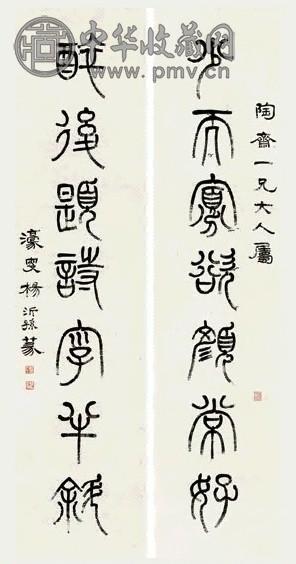 中华收藏网
www.pmv.cn
陶齋一兄大人屬
少而寡欲顏常好
醉後題詩字半斜
濠叟楊沂孫篆